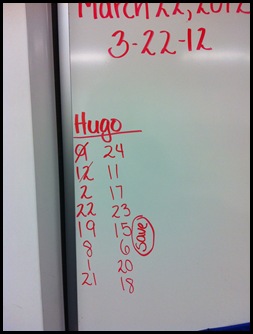 March 22, 2012
3-22-12
Hugo
9 24
12 11
2 17
22 23
19 15
8 6 save
1 20
21 18